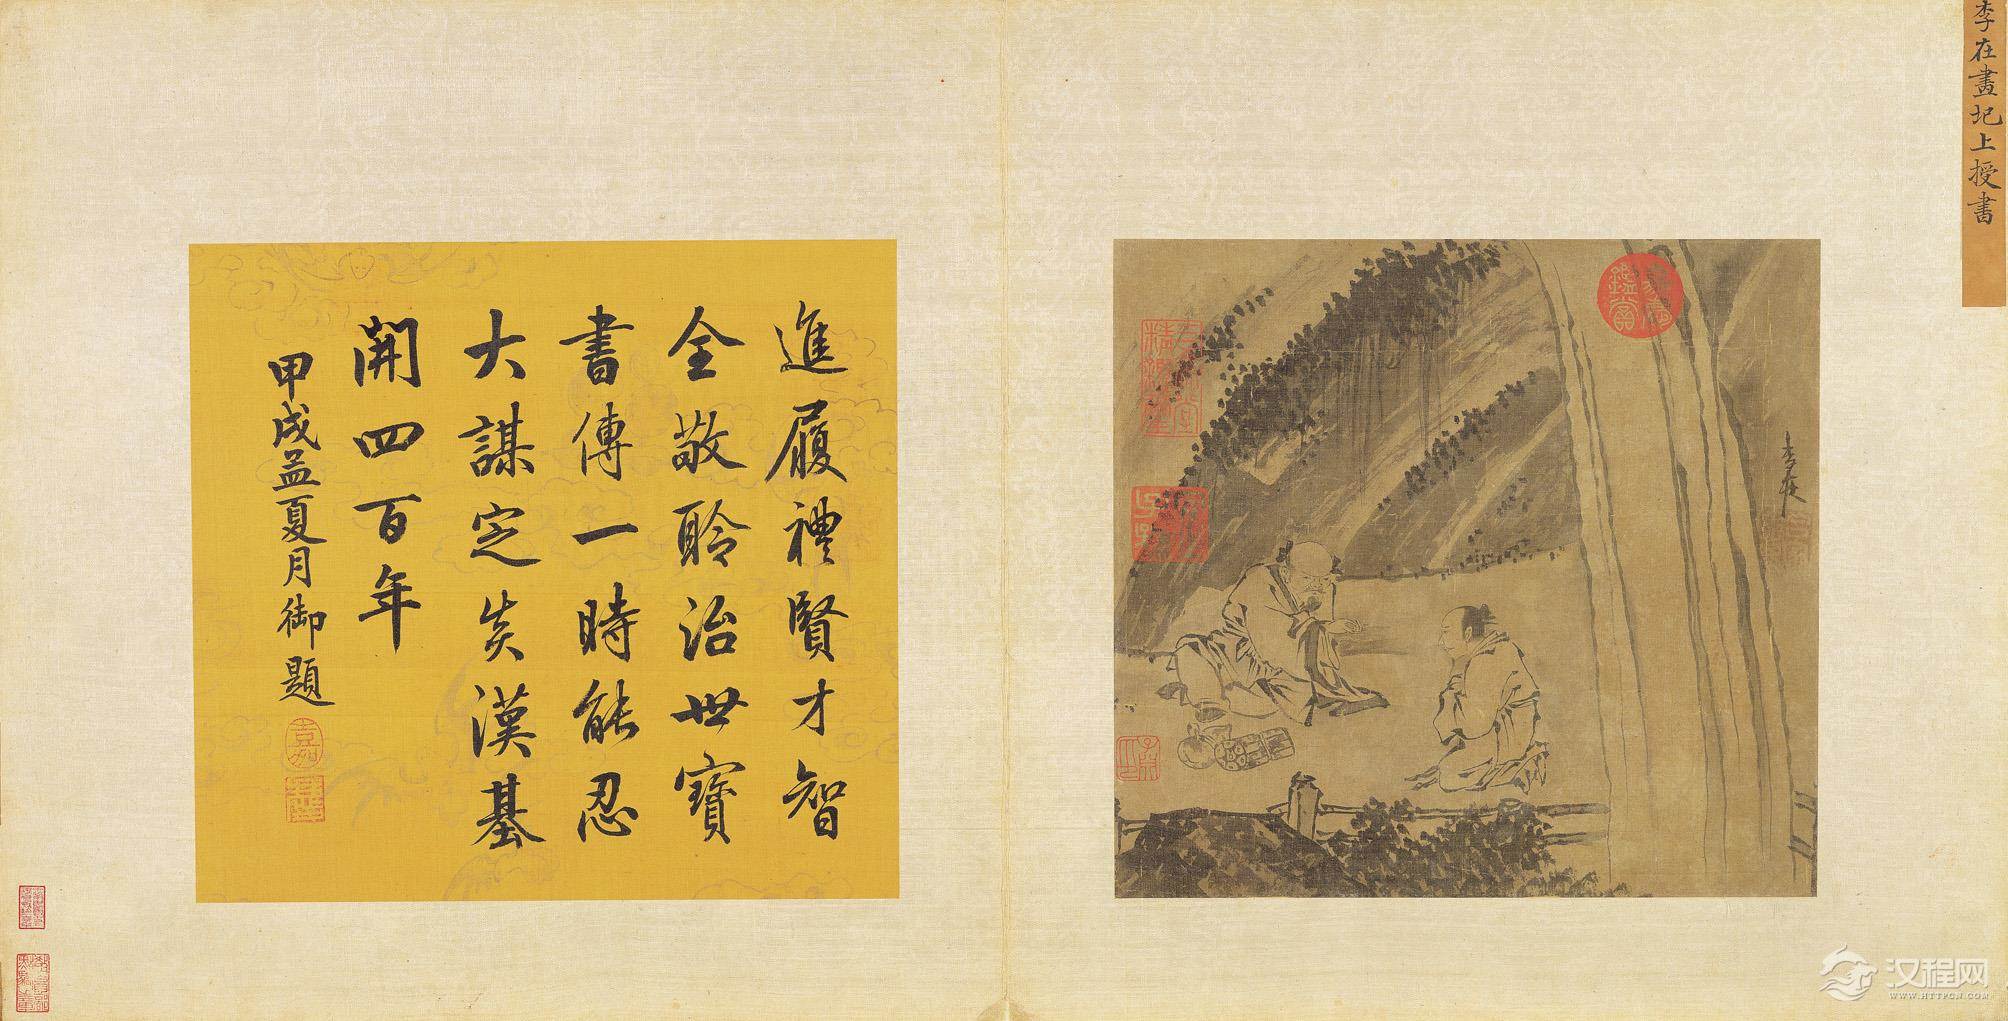 李在畫圯上授書
李在
進履禮賢才智
全敬聆治世寶
書傳一時能忍
大謀定矣漢基
開四百年
甲戌孟夏月御題
汉程网
WWW.HTTPCN.COM